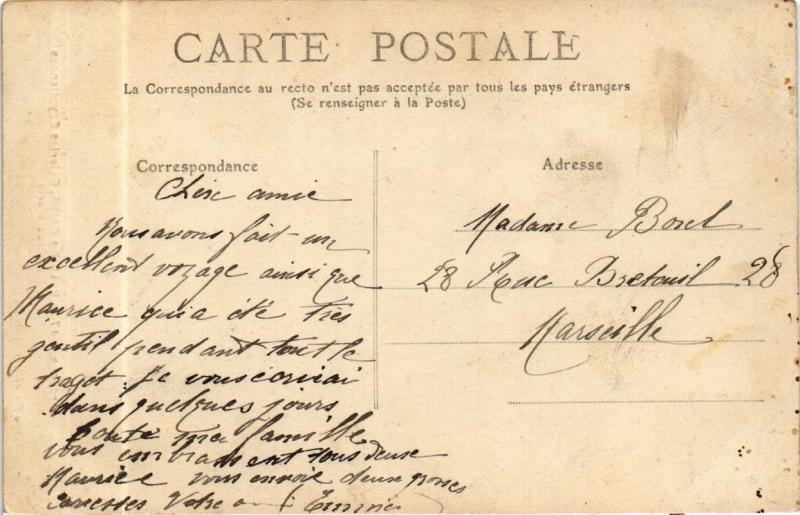 CARTE POSTALE
La Correspondance au recto n'est pas acceptée par tous les pays étrangers
(Se renseigner à la Poste)
Correspondance
Chère amie
Nous avons fait un
excellent voyage ainsi que
Maurice qui a été très
gentil pendant tout le
traget. Je vous écrirai
dans quelques jours
toute ma famille
vous embrassent tous deux
Maurice vous envoie deux groses
carresses Votre
Adresse
Madame Borel
28 Rue Breteuil 28
Marseille